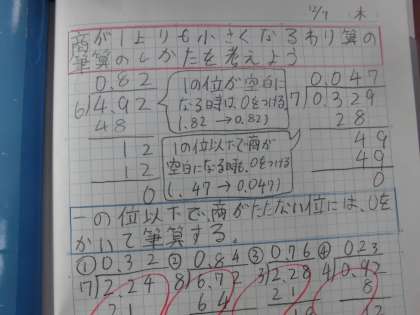 12/7 木
商が1よりも小さくなるわり算の
筆算のしかたを考えよう
0.82
6)4.92
48
12
12
0
1の位が空白に
なる時は、0をつける
(.82→0.82)
1の位以下で商が
空白になる時も、0をつける
(.47→0.047)
0.047
7)0.329
28
49
49
0
一の位以下で、商がたたない位には、0を
かいて筆算する。
①0.32 ②0.84 ③0.76 ④0.23
7)2.24 8)6.72 3)2.28 4)0.92
21 64 21 8